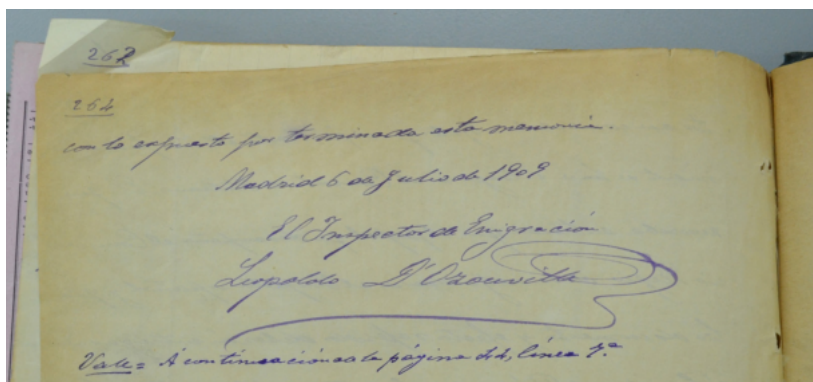 267
264
con lo expuesto por terminada esta memoria.
Madrid 6 de Julio de 1909
El Inspector de Emigración
Leopoldo D'Ozouville
Vale = Á continuación a la página 22, línea 7.ª